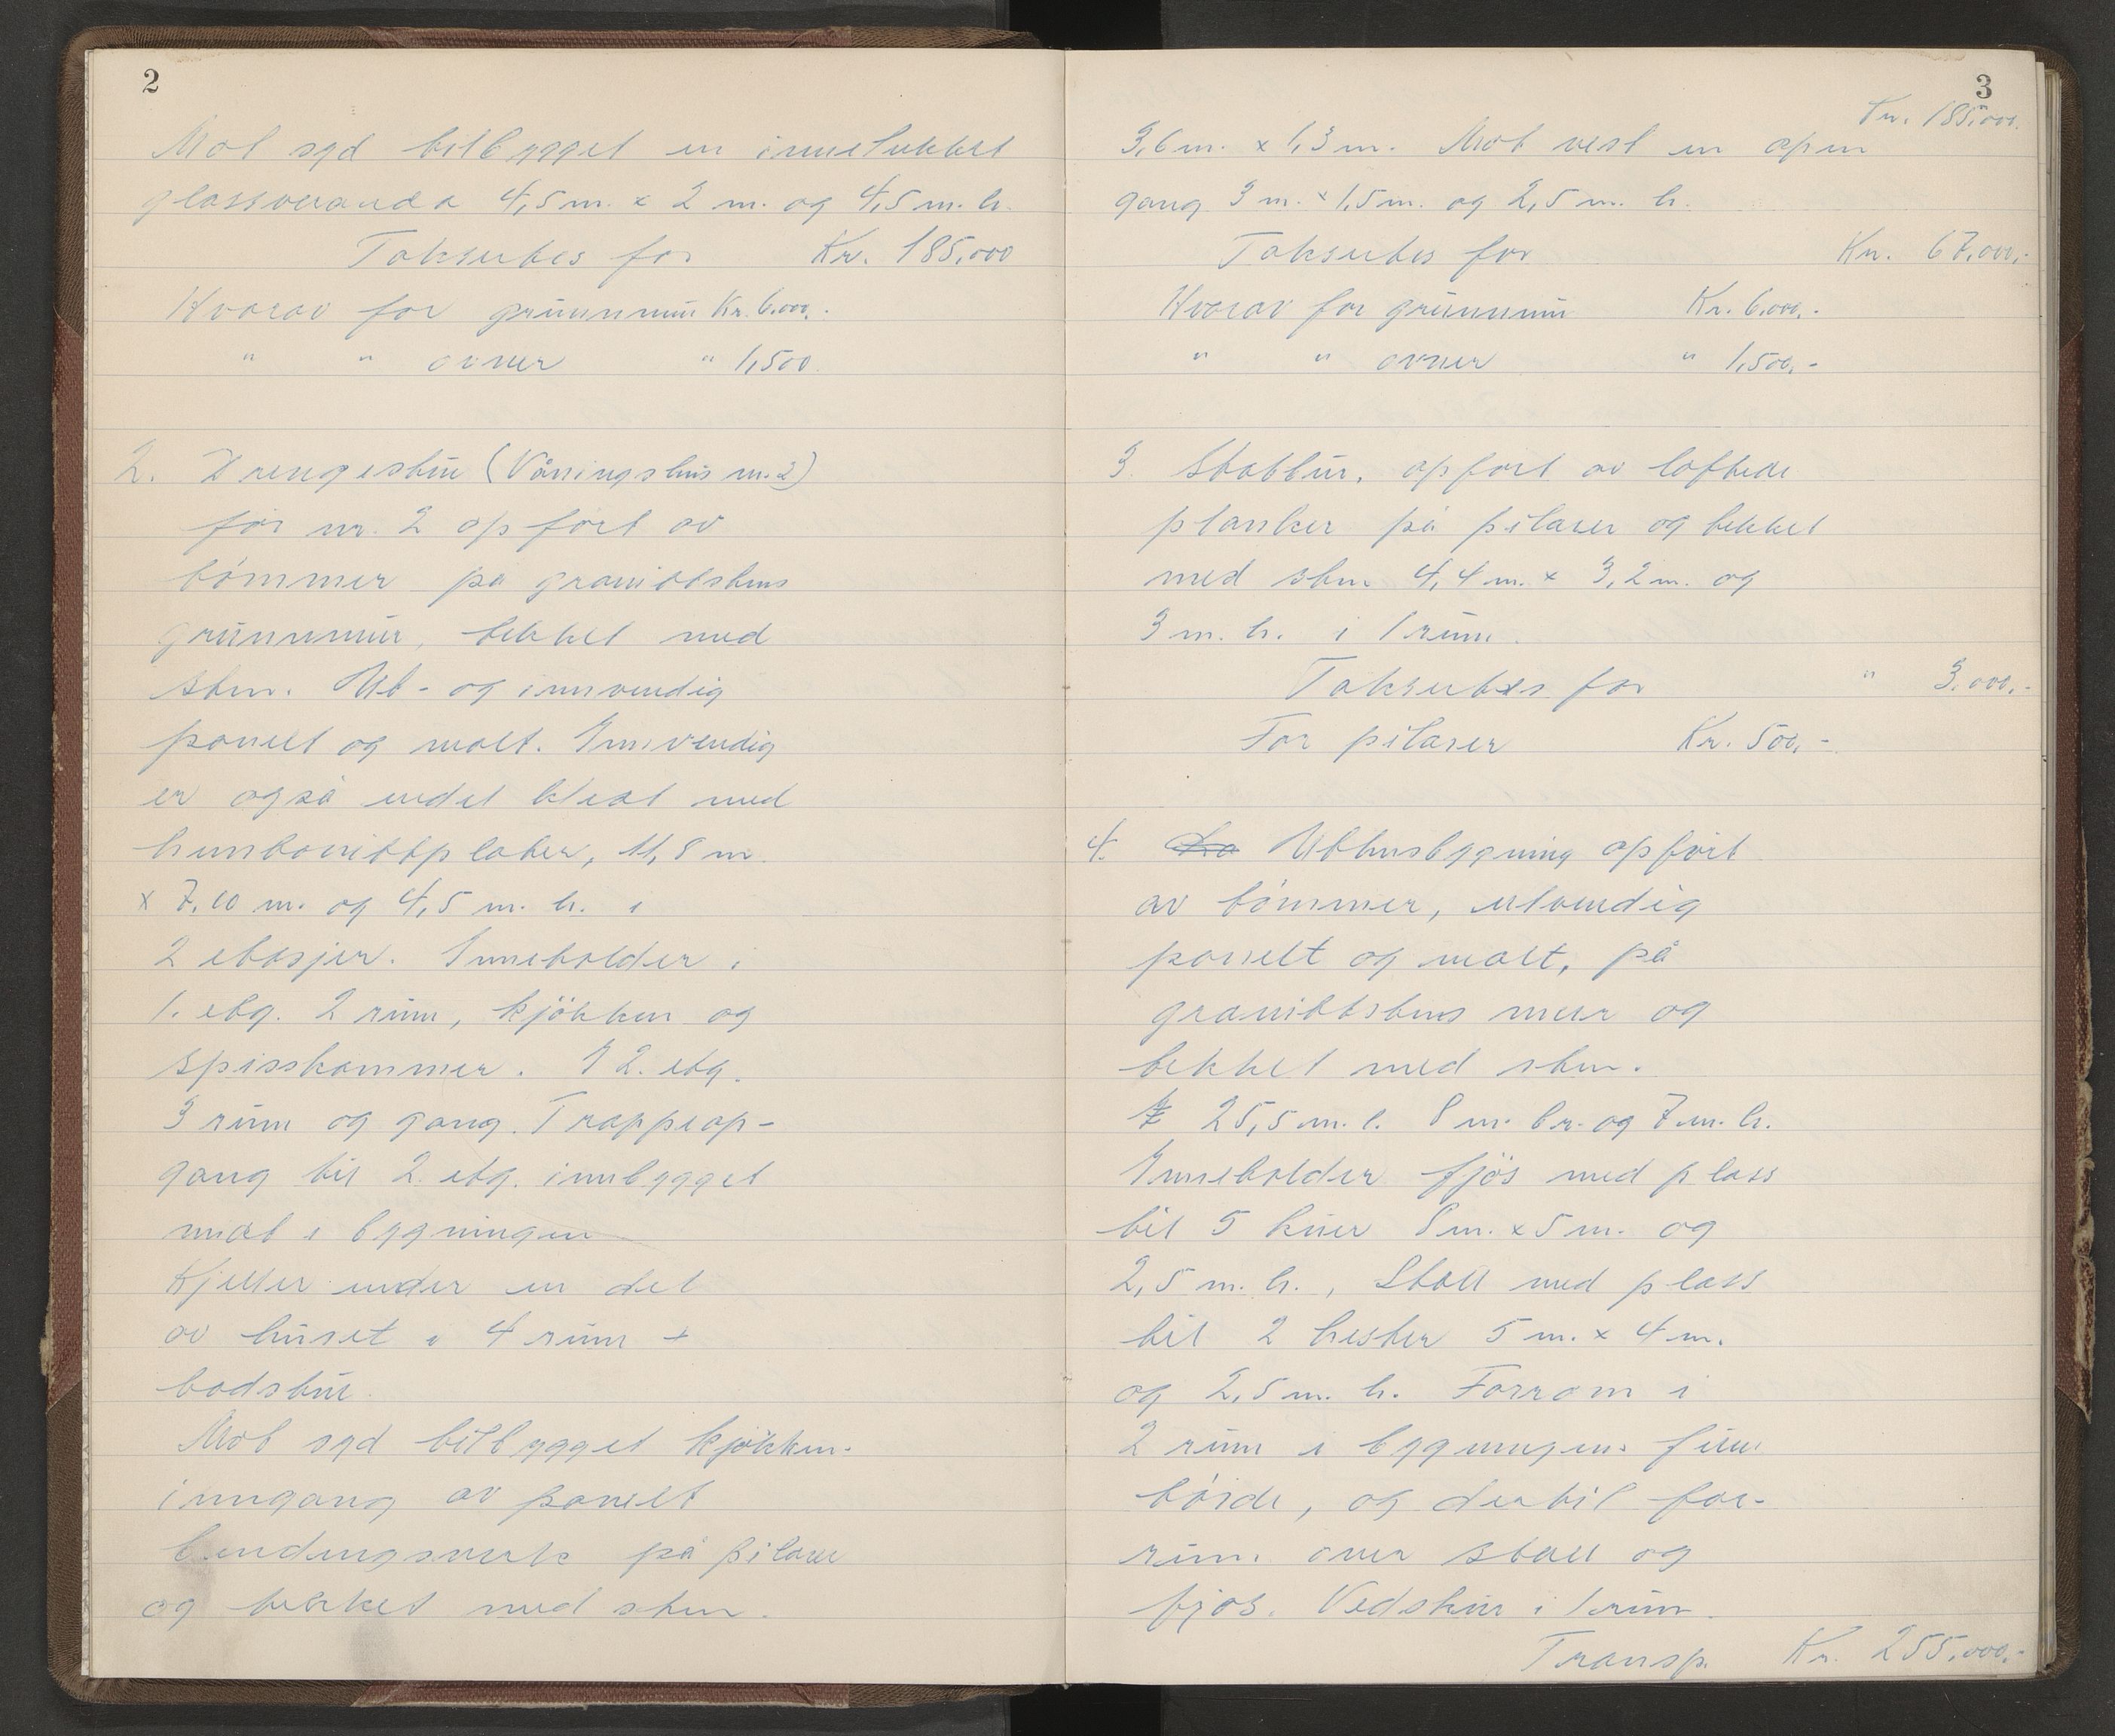 2
Mot syd tilbygget en innelukket
glassveranda 4,5 m. x 2 m. og 4,5 m. h.
Taksertes for Kr. 185,000
Hvorav for grunnmur Kr. 6.000,-
" " ovner " 1,500
2. Drengestue (Våningshus nr. 2)
før nr. 2 opført av
tømmer på granittstens
grunnmur, tekket med
sten. Ut- og innvendig
panelt og malt. Innvendig
er også endel kledt med
huntonittplater, 11,8 m.
x 7,10 m. og 4,5 m. h. i
2 etasjer. Inneholder i
1. etg. 2 rum, kjökken og
spisskammer. I 2. etg.
3 rum og gang. Trappeop-
gang til 2. etg. innbygget
midt i bygningen
Kjeller under en del
av huset i 4 rum +
badstue.
Mot syd tilbygget kjökken-
inngang av panelt
bindingsverk på pilarer
og tekket med sten.
3
Kr. 185,000.
3,6 m. x 1,3 m. Mot vest en open
gang 3 m. x 1,5 m. og 2,5 m. h.
Taksertes for Kr. 67,000,-
Hvorav for grunnmur Kr. 6,000,-
" " ovner " 1,500,-
3. Stabbur, opført av loftede
planker på pilarer og tekket
med sten 4,4 m. x 3,2 m. og
3 m. h. i 1 rum.
Taksertes for " 3,000,-
For pilarer Kr. 500,-
4. Uthusbygning opfört
av tömmer, utvendig
panelt og malt, på
granittstens mur og
tekket med sten.
25,5 m. l. 8 m. br. og 7 m. h.
Inneholder fjös med plass
til 5 kuer 8 m. x 5 m. og
2,5 m. h., Stall med plass
til 2 hester 5 m. x 4 m.
og 2,5 m. h. Forrom i
2 rum i bygningens fulle
höide, og dertil for-
rum over stall og
fjös. Vedskur i 1 rum.
Transp. Kr. 255,000,-